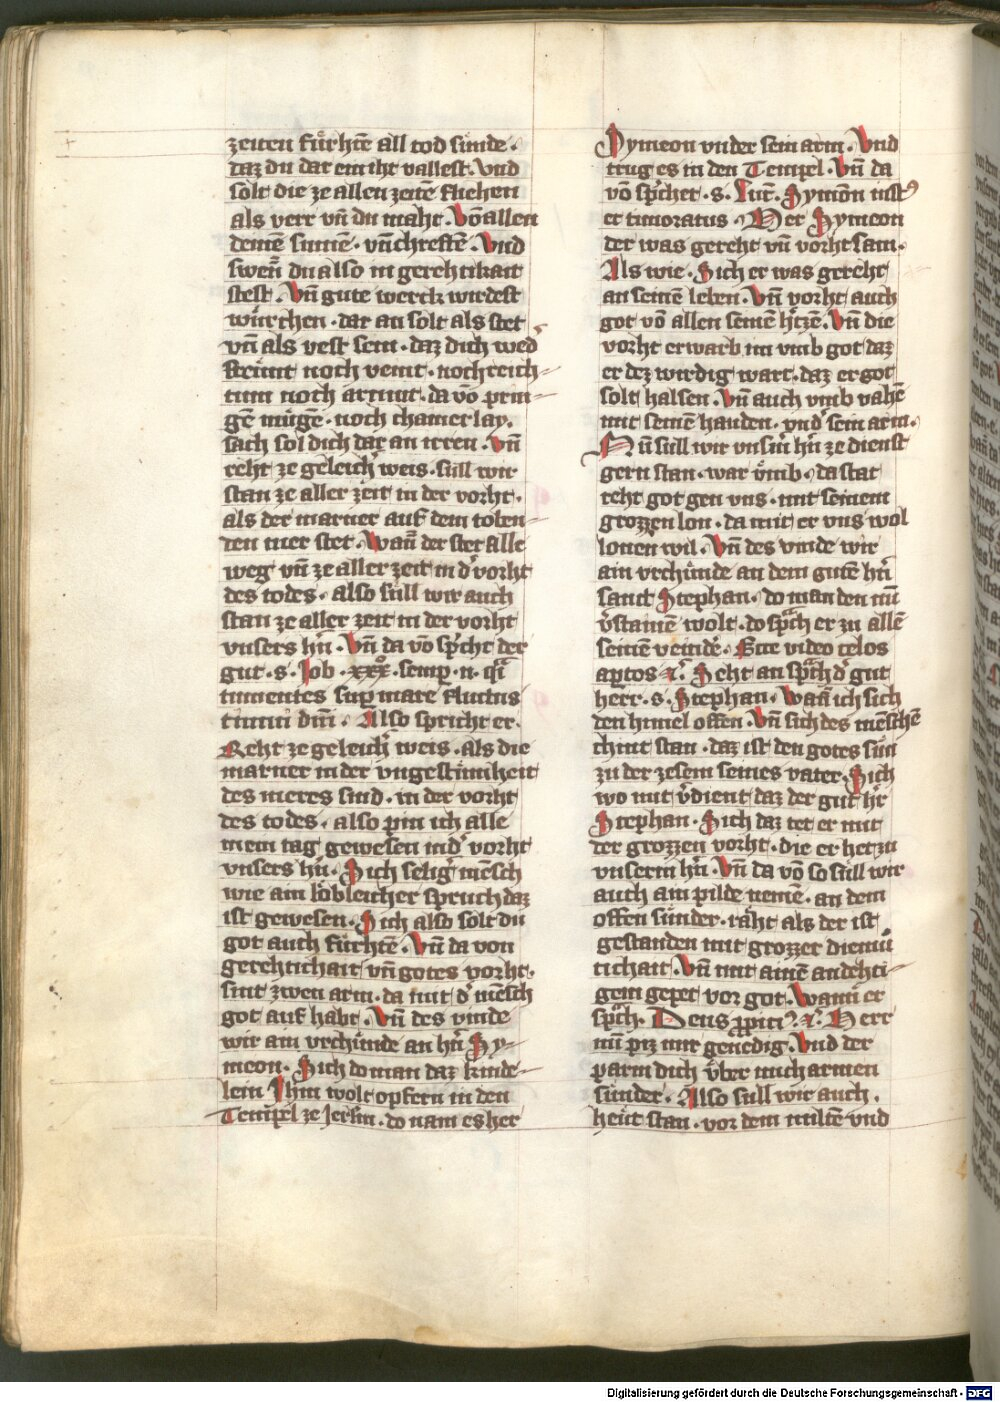 zeiten fürhtē all tod sünde.
daz du dar ein iht vallest. Vnd
solt die ze allen zeitē fliehen
als verr vn̄ du maht. Vō allen
deinē sinnē. vn̄ chreftē. Vnd
swen̄ du also in gerehtikait
stest. Vn̄ gute werck wirdest
würchen. dar an solt als stet
vn̄ als vest sein. daz dich wed'
freünt noch veint. noch reich-
tum noch armut. da vō prin-
gē mügē. noch chainer lay.
sach sol dich dar an irren. Vn̄
reht ze geleich' weis. süll wir
stan ze aller zeit in der vorht.
als der marner auf dem toben-
den mer stet. Wan̄ der stet alle
weg vn̄ ze aller zeit in d' vorht
des todes. also süll wir auch
stan ze aller zeit in der vorht
vnsers hn̄. Vn̄ da vō sp'cht der
gut. s. Job. xxxº. semp. n. qͣi
tumentes sup mare fluctus
timui dm̄. Also spricht er.
Reht ze geleich' weis. als die
marner in der vngestümheit
des meres sind. in der vorht
des todes. also pin ich alle
mein tag gewesen in d' vorht
vnsers hn̄. Sich selig' mēsch
wie ain löbleicher spruch daz
ist gewesen. Sich also solt du
got auch fürhtē. Vn̄ da von
gerehtichait vn̄ gotes vorht.
sint zwen arm. da mit d' mēsch
got auf habt. Vn̄ des vinde
wir ain vrchünde an hn̄ Sy-
meon. Sich do man daz kinde-
lein Jhm wolt opfern in den
Tempel ze Jerlm. do nam es her
Symeon vnder sein arm. Vnd
trug es in den Tempel. Vn̄ da
vō sp'chet. s. Luc̄. Symōn iust9
et timoratus. Der Symeon
der was gereht vn̄ vorhtsam.
Als wie. Sich er was gereht
an seinē leben. Vn̄ vorht auch
got vō allen seinē h'tzē. Vn̄ die
vorht erwarb im vmb got daz
er dez wirdig wart. daz er got
solt halsen. Vn̄ auch vmb vahē
mit seinē handen. vnd' sein arm.
Nu süll wir vnsm̄ hn̄ ze dienst
gern stan. war v̈mb. da stat
reht got gen vns. mit seinem
grozzen lon. da mit er vns wol
lonen wil. Vn̄ des vinde wir
ain vrchünde an dem gutē hn̄
sanct Stephan. do man den nū
v'stainē wolt. do spͣch er zu allē
seinē veindē. Ecce video celos
aptos &c̄. Seht an spͣch d' gut
herr. s. Stephan. Wan̄ ich sich
den himel offen. Vn̄ sich des mēschē
chint stan. daz ist den gotes sün
zu der zesem seines vater. Sich
wo mit v'dient daz der gut h'r
Stephan. Sich daz tet er mit
der grozzen vorht. die er het zu
vnserm hn̄. Vn̄ da vō so süll wir
auch ain pilde nemē. an dem
offen sünder. räht als der ist
gestanden mit grozzer diemü
tichait. Vn̄ mit ainē andehti-
gem gepet vor got. Wann er
spͣch. Deus ppici9 &c̄. Herr
nū piz mir genedig. Vnd der
parm dich v̈ber mich armen
sünder. Also süll wir auch.
heüt stan. vor dem miltē vnd
Digitalisierung gefördert durch die Deutsche Forschungsgemeinschaft - DFG